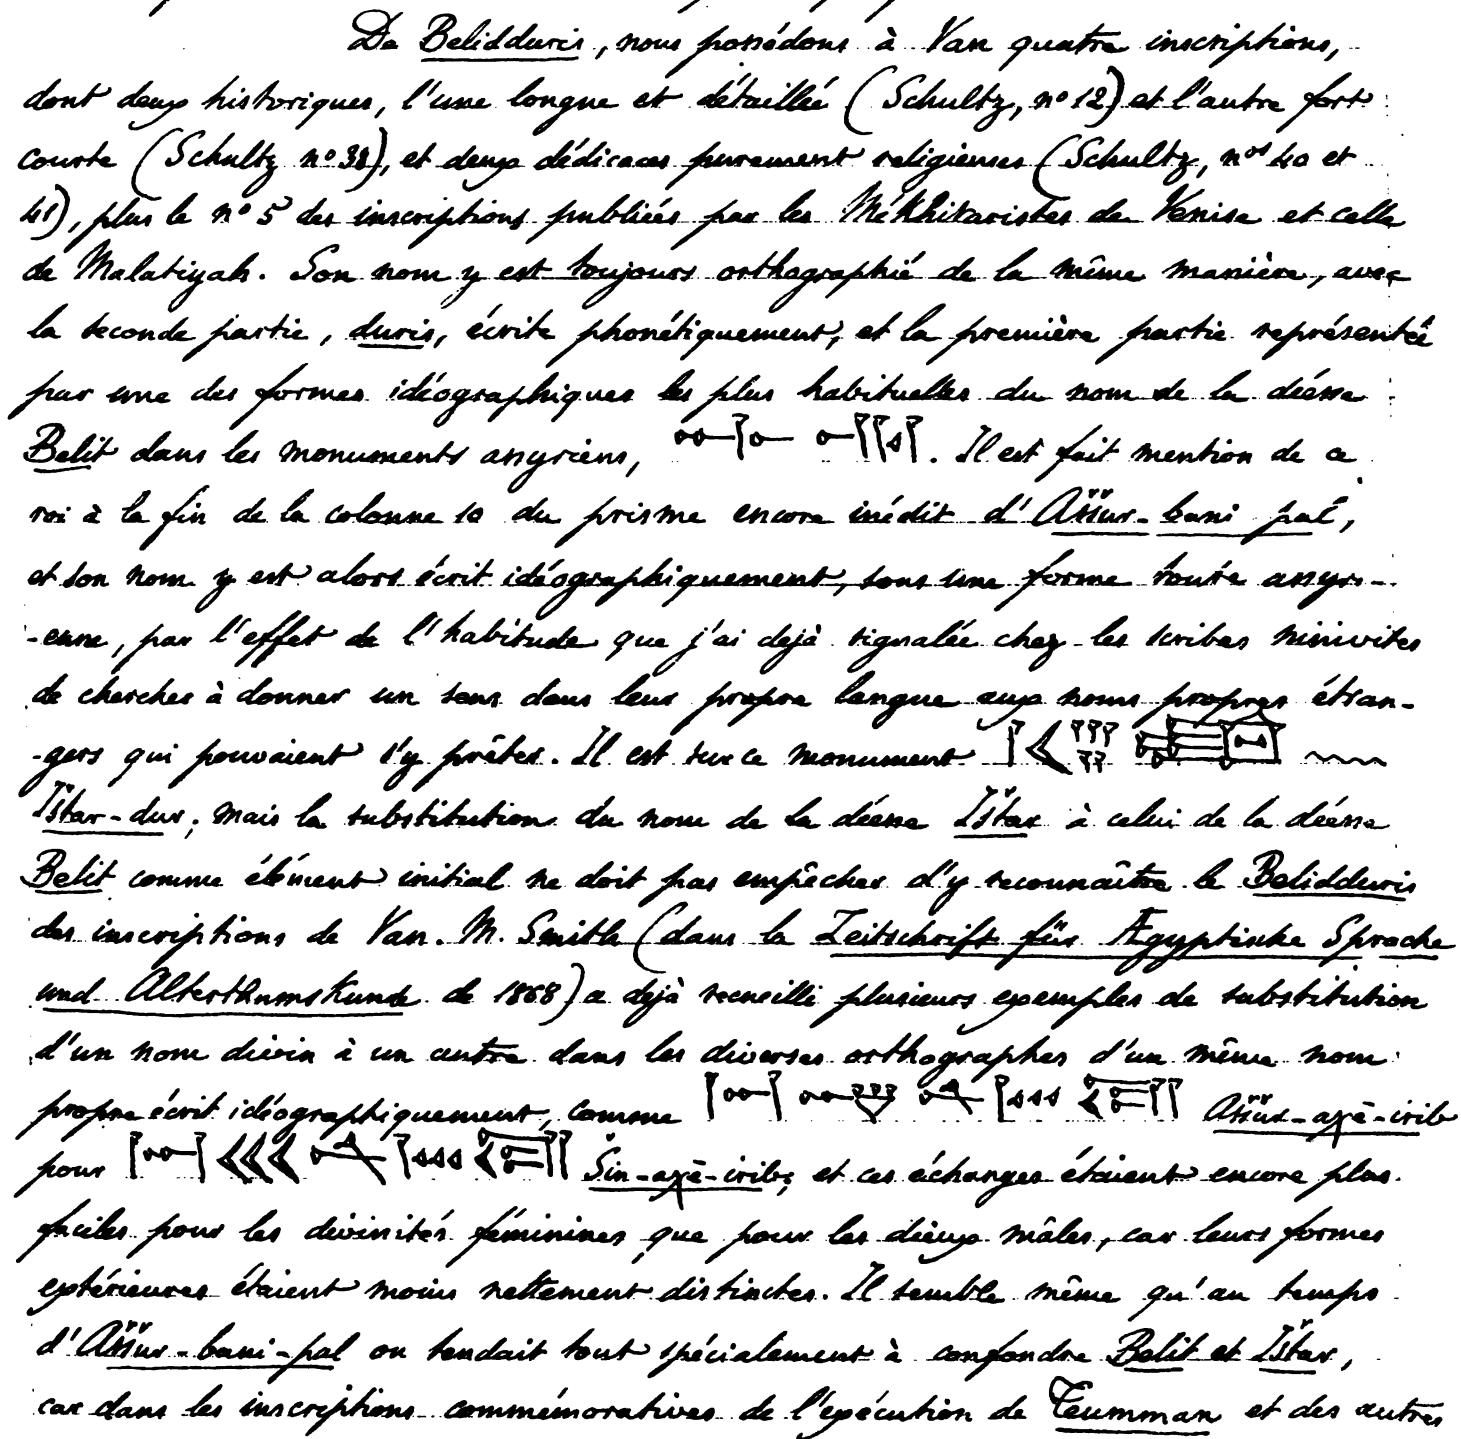 De Belidduris, nous possédons à Van quatre inscriptions,
dont deux historiques, l'une longue et détaillée (Schultz, nº 12) et l'autre fort
courte (Schultz nº 38), et deux dédicaces purement religieuses (Schultz, nos 40 et
41), plus le nº 5 des inscriptions publiées par les Mékhitaristes de Venise et celle
de Malatiyah. Son nom y est toujours orthographié de la même manière, avec
la seconde partie, duris, écrite phonétiquement, et la première partie représentée
par une des formes idéographiques les plus habituelles du nom de la déesse
Belit dans les monuments assyriens, . Il est fait mention de ce
roi à la fin de la colonne 10 du prisme encore inédit d'Aššur-bani pal,
et son nom y est alors écrit idéographiquement, sous une forme toute assyri-
-enne, par l'effet de l'habitude que j'ai dejà signalée chez les scribes ninivites
de chercher à donner un sens dans leur propre langue aux noms propres étran-
-gers qui pouvaient s'y prêter. Il est sur ce monument
Ištar-dur; mais la substitution du nom de la déesse Ištar à celui de la déesse
Belit comme élément initial ne doit pas empêcher d'y reconnaître le Belidduris
des inscriptions de Van. M. Smith (dans la Zeitschrift für Ægyptische Sprache
und Alterthumskunde de 1868) a dejà recueilli plusieurs exemples de substitution
d'un nom divin à un autre dans les diverses orthographes d'un même nom
propre écrit idéographiquement, comme Aššur-aχē-irib
pour Šin-aχē-irib; et ces échanges étaient encore plus
faciles pour les divinités féminines que pour les dieux mâles, car leurs formes
extérieures étaient moins nettement distinctes. Il semble même qu'au temps
d'Aššur-bani-pal on tendait tout spécialement à confondre Belit et Ištar,
car dans les inscriptions commémoratives de l'exécution de Teumman et des autres